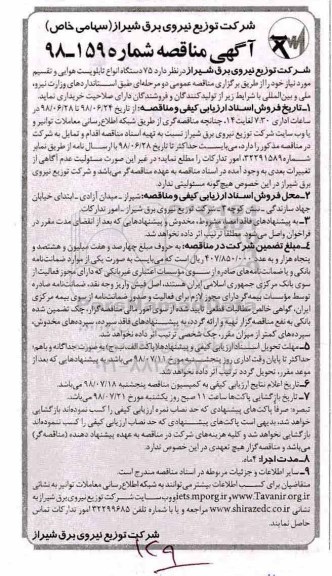 شرکت توزیع نیروی برق شیراز (سهامی خاص)
آگهی مناقصه شماره ۱۵۹-۹۸
شرکت توزیع نیروی برق شیراز در نظر دارد ۷۵ دستگاه انواع تابلو پست هوایی و تقسیم
مورد نیاز خود را از طریق برگزاری مناقصه عمومی دو مرحله‌ای طبق استانداردهای وزارت نیرو،
ملی و بین‌المللی با شرایط زیر از تولید کنندگان و فروشندگان دارای صلاحیت خریداری نماید.
۱- تاریخ فروش اسناد ارزیابی کیفی و مناقصه: از تاریخ ۹۸/۰۶/۲۴ تا ۹۸/۰۶/۲۸ در
ساعات اداری ۷:۳۰ لغایت ۱۴، چنانچه مناقصه‌گری از طریق شبکه اطلاع‌رسانی معاملات توانیر و
یا وب سایت شرکت توزیع نیروی برق شیراز نسبت به تهیه اسناد مناقصه اقدام و تمایل به شرکت
در مناقصه مذکور را دارد، می‌بایست حداکثر تا تاریخ ۹۸/۰۶/۲۸ با ارسال نامه از طریق نمابر
شماره ۳۲۲۹۱۵۸۹، امور تدارکات را مطلع نماید؛ در غیر این صورت مسئولیت عدم آگاهی از
تغییرات بعدی به وجود آمده در اسناد مناقصه به عهده مناقصه‌گر می‌باشد و شرکت توزیع نیروی
برق شیراز در این خصوص هیچ‌گونه مسئولیتی ندارد.
۲- محل فروش اسناد ارزیابی کیفی و مناقصه: شیراز - میدان آزادی - ابتدای خیابان
جهاد سازندگی - نبش کوچه ۳ - شرکت توزیع نیروی برق شیراز - امور تدارکات
۳- به پیشنهادهای فاقد امضا، مشروط، مخدوش و پیشنهادهایی که بعد از انقضای مدت مقرر در
فراخوان واصل می‌شود، مطلقاً ترتیب اثر داده نخواهد شد.
۴- مبلغ تضمین شرکت در مناقصه: به حروف مبلغ چهارصد و هفت میلیون و هشتصد و
پنجاه هزار و به عدد ۴۰۷/۸۵۰/۰۰۰ ریال است که می‌بایست به صورت یکی از موارد ضمانت‌نامه
بانکی و یا ضمانت‌نامه‌های صادره از سوی مؤسسات اعتباری غیربانکی که دارای مجوز فعالیت از
سوی بانک مرکزی جمهوری اسلامی ایران هستند، اصل فیش واریز وجه نقد، ضمانت‌نامه صادره
توسط مؤسسات بیمه‌گر دارای مجوز لازم برای فعالیت و صدور ضمانت‌نامه از سوی بیمه مرکزی
ایران، گواهی خالص مطالبات قطعی تأیید شده از سوی امور مالی مناقصه‌گزار، چک تضمین شده
بانکی به نفع مناقصه‌گزار تهیه و ارائه گردد، به پیشنهادهای فاقد سپرده، سپرده‌های مخدوش،
سپرده‌های کمتر از میزان مقرر، چک شخصی ترتیب اثر داده نخواهد شد.
۵- مهلت تحویل اسناد ارزیابی کیفی و پیشنهادها (پاکت الف، ب، ج) به صورت جداگانه و باهم:
حداکثر تا پایان وقت اداری روز پنجشنبه مورخ ۹۸/۰۷/۱۱ می‌باشد، به پیشنهادهایی که بعد از
موعد مقرر، تحویل گردد ترتیب اثر داده نخواهد شد.
۶- تاریخ اعلام نتایج ارزیابی کیفی به کمیسیون مناقصه پنجشنبه ۹۸/۰۷/۱۸ می‌باشد.
۷- تاریخ بازگشایی پاکت‌ها ساعت ۱۱ صبح روز یکشنبه مورخ ۹۸/۰۷/۲۱ می‌باشد.
تبصره: صرفاً پاکت‌های پیشنهادی که حد نصاب نمره ارزیابی کیفی را کسب نموده‌اند بازگشایی
خواهد شد، بدیهی است پاکت‌های پیشنهادی که حد نصاب ارزیابی کیفی را کسب ننموده‌اند
بازگشایی نخواهد شد و کلیه هزینه‌های شرکت در مناقصه به عهده پیشنهاد دهنده (مناقصه‌گر)
می‌باشد و مناقصه‌گزار هیچ تعهدی در این خصوص ندارد.
۸- مدت اجرا: ۴ ماه.
۹- سایر اطلاعات و جزئیات مربوطه در اسناد مناقصه مندرج است.
متقاضیان برای کسب اطلاعات بیشتر می‌توانند به شبکه اطلاع‌رسانی معاملات توانیر به نشانی
www.Tavanir.org.ir و iets.mporg.ir و وب سایت شرکت توزیع نیروی برق شیراز به
نشانی www.shirazedc.co.ir مراجعه و یا با شماره تلفن ۳۲۲۹۹۶۸۵ امور تدارکات تماس
حاصل نمایند.
شرکت توزیع نیروی برق شیراز